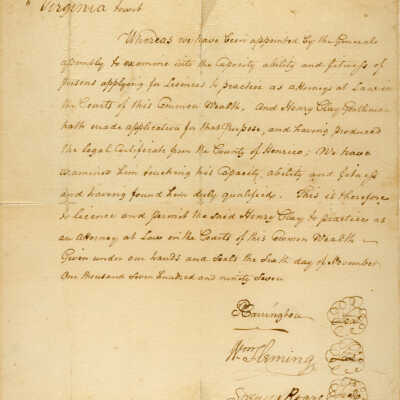 Virginia towit
Whereas we have been appointed by the General
assembly to examine into the Capacity ability and fitness of
persons applying for Licences to practice as attorneys at Law in
the Courts of this Common Wealth, and Henry Clay Gentleman
hath made application for that Purpose, and having produced
the legal Certificate from the County of Henrico; We have
examined him touching his Capacity, ability and fitness
and having found him duly qualified. This is therefore
to licence and permit the said Henry Clay to practice as
an Attorney at Law in the Courts of this Common Wealth
Given under our hands and Seals the Sixth day of November
One thousand Seven hundred and ninety Seven
PCarrington Seal
Wm Fleming Seal
Spencer Roane Seal